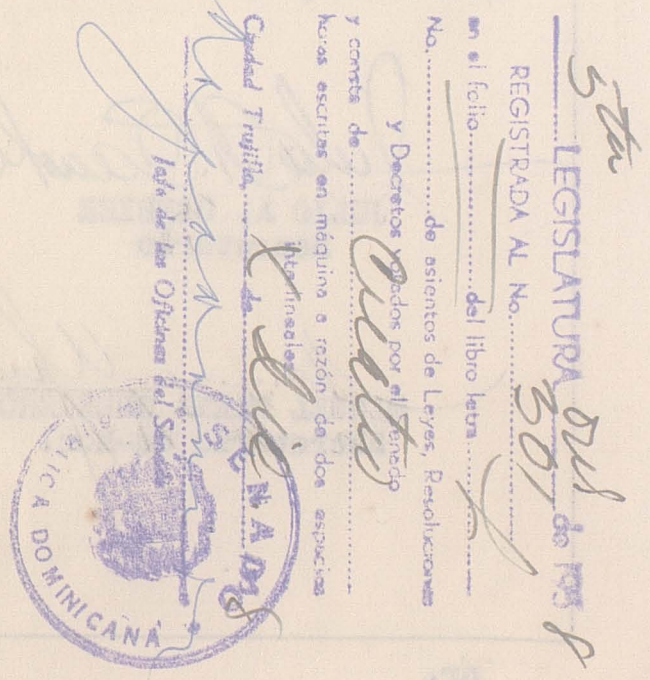 5ta LEGISLATURA ord de 1958
REGISTRADA AL No. 301
en el folio del libro letra
No. de asientos de Leyes, Resoluciones
y Decretos votados por el Senado
y consta de Cuatro
hojas escritas en máquina a razón de dos espacios
interlineales
Ciudad Trujillo, de Dic
Jefe de las Oficinas del Senado
SENADO
REPUBLICA DOMINICANA